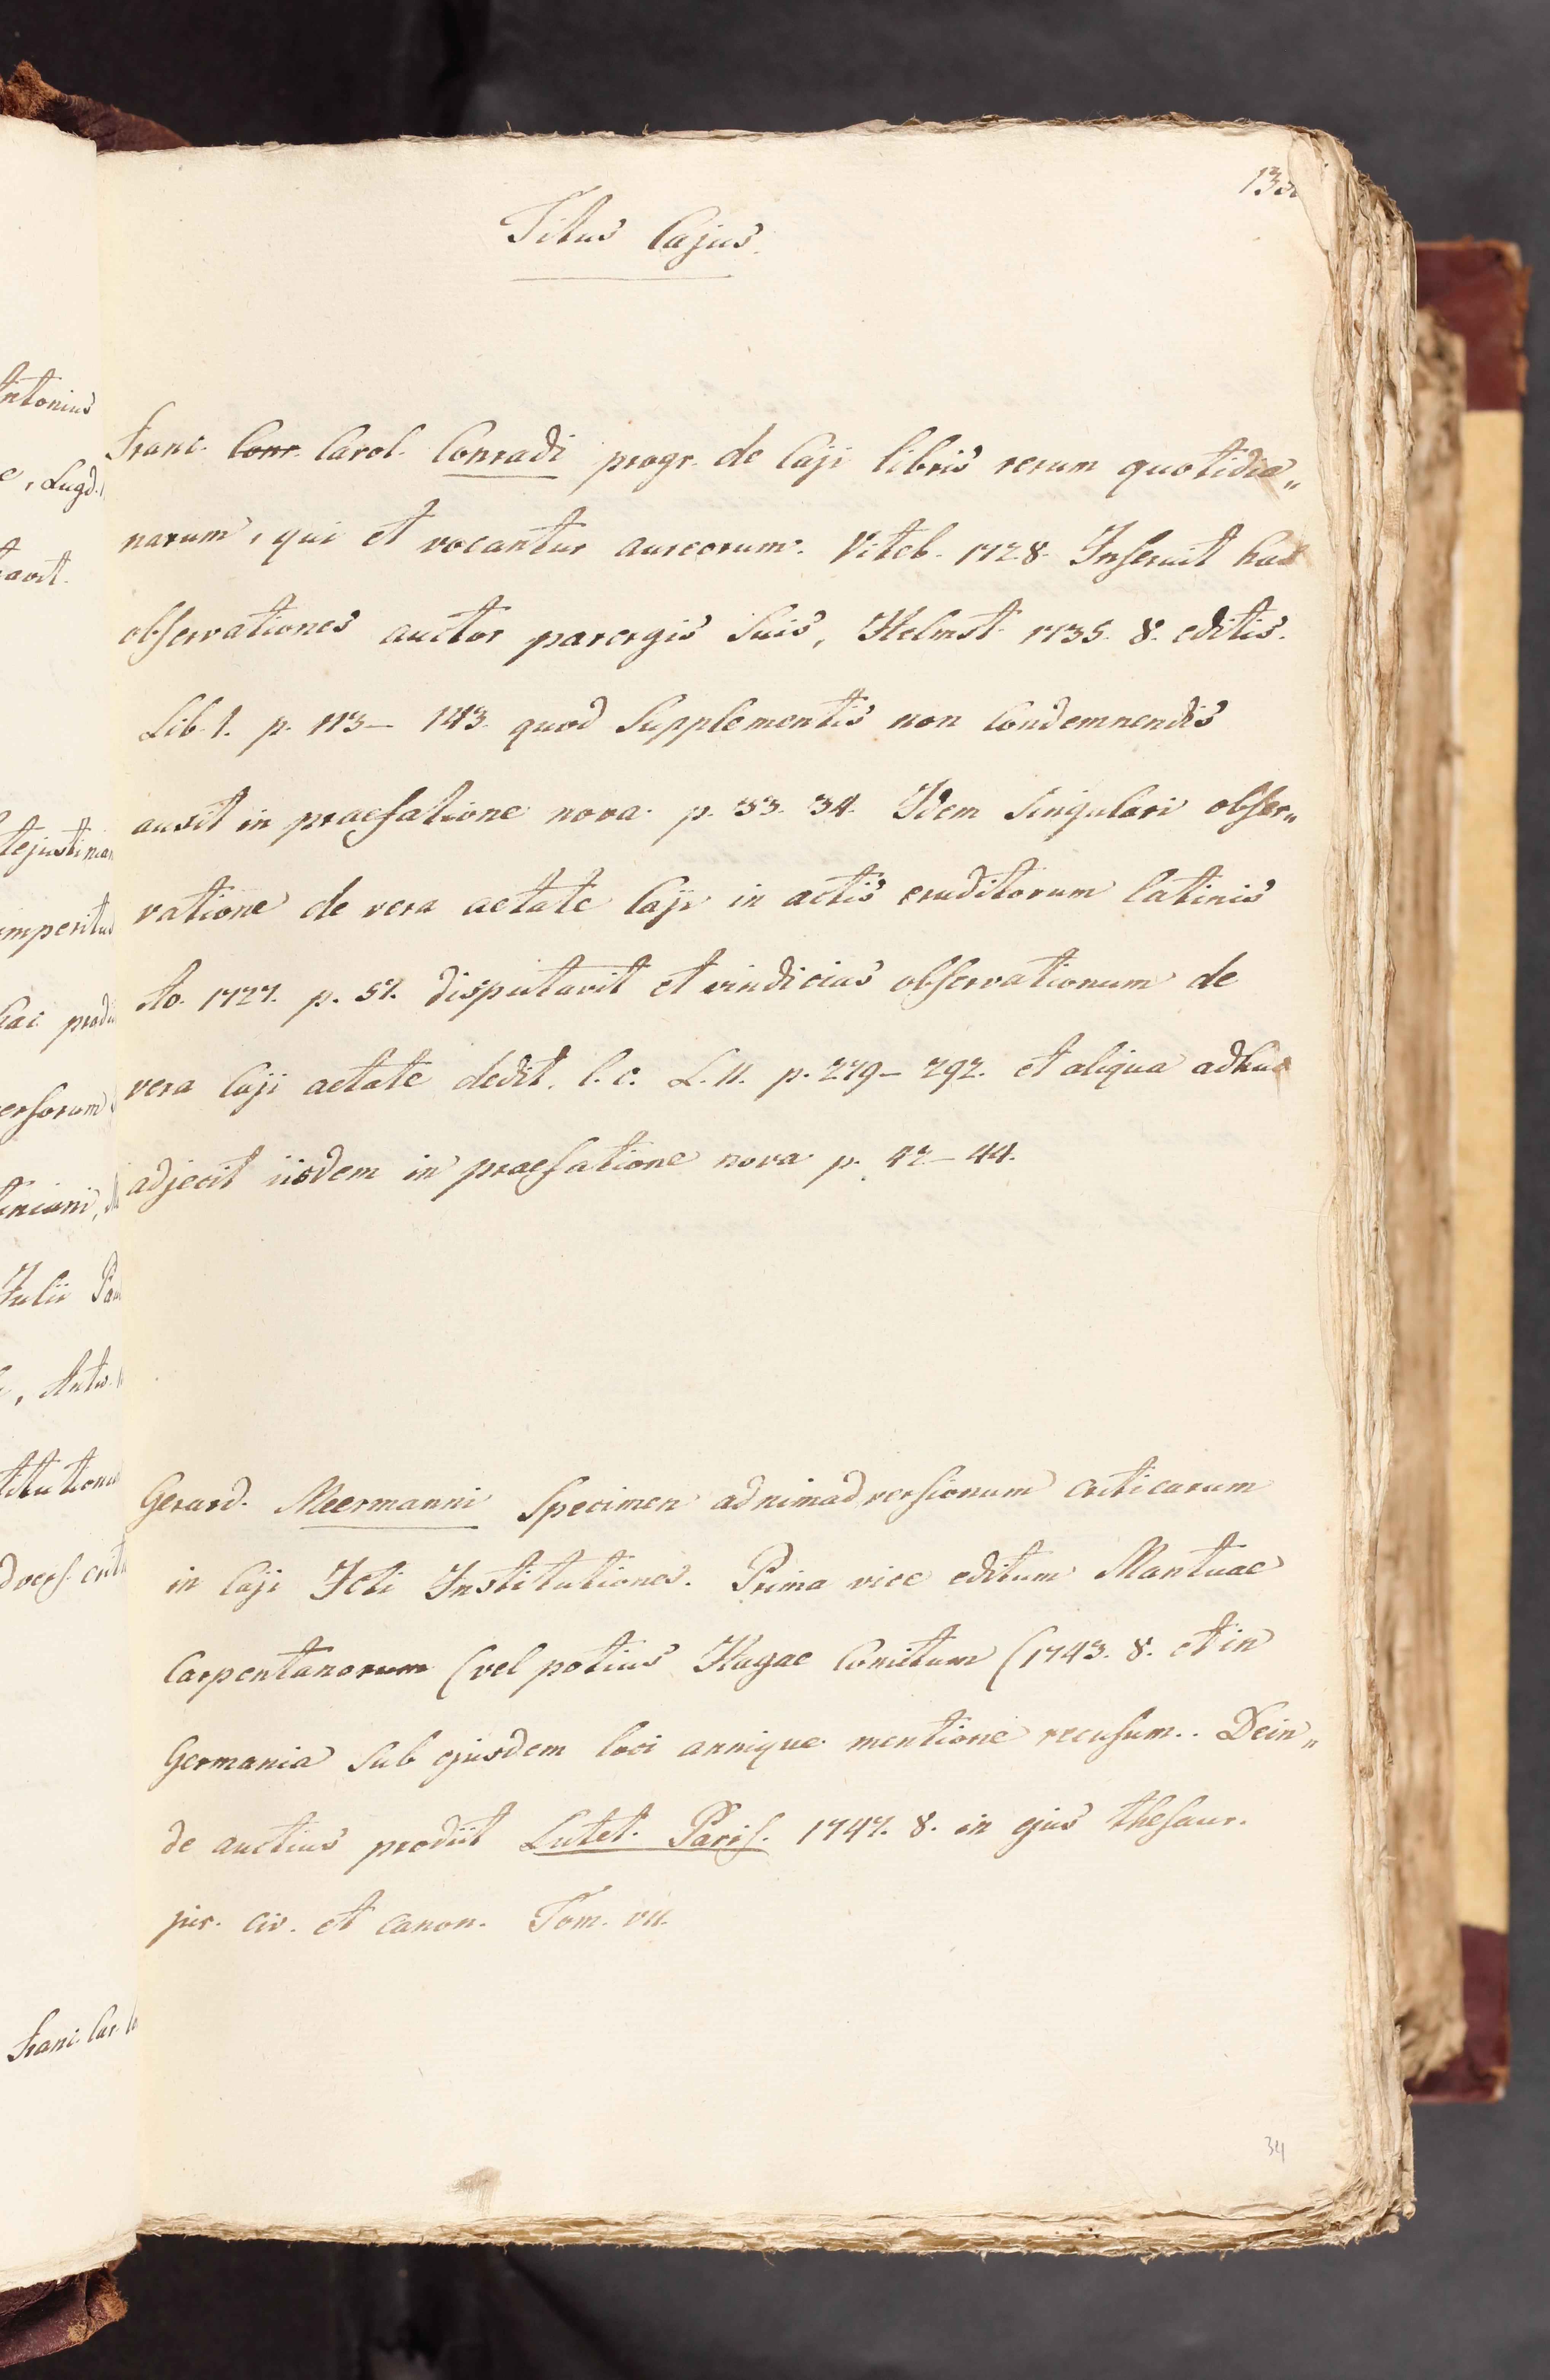 Titus Cajus.
Franc. Conr. Carol. Conradi progr. de Caji libris rerum quotidia„
narum, qui et vocantur aureorum. Viteb. 1728. Inseruit has
observationes auctor parergis suis, Helmst. 1735. 8. editis.
Lib. I. p. 113– 143. quod supplementis non condemnendis
auxit in praefatione nova p. 33. 34. Idem singulari obser„
vatione de vera aetate Caji in actis eruditorum latinis
Ao. 1727. p. 57. disputavit et vindicias observationum de
vera Caji aetate dedit. l. c. L. II. p. 279– 292. et aliqua adhuc
adjecit iisdem in praefatione nova p. 42– 44.
Gerard. Meermanni Specimen adnimadversionum criticarum
in Caji Icti Institutiones. Prima vice editum Mantuae
Carpentanorum (vel potius Hagae Comitum (1743. 8. et in
Germania sub ejusdem loci annique mentione recusum. . Dein„
de auctius prodiit Lutet. Paris. 1747. 8. in ejus thesaur.
jur. civ. et canon. Tom. VII.
34
ntonius
e, Lugd.
tavit.
tejustinian
imperitus
hac prodi
ersorum
tiniani,
Julii Pau
titutiones
dvers. crit
Franc. Car.